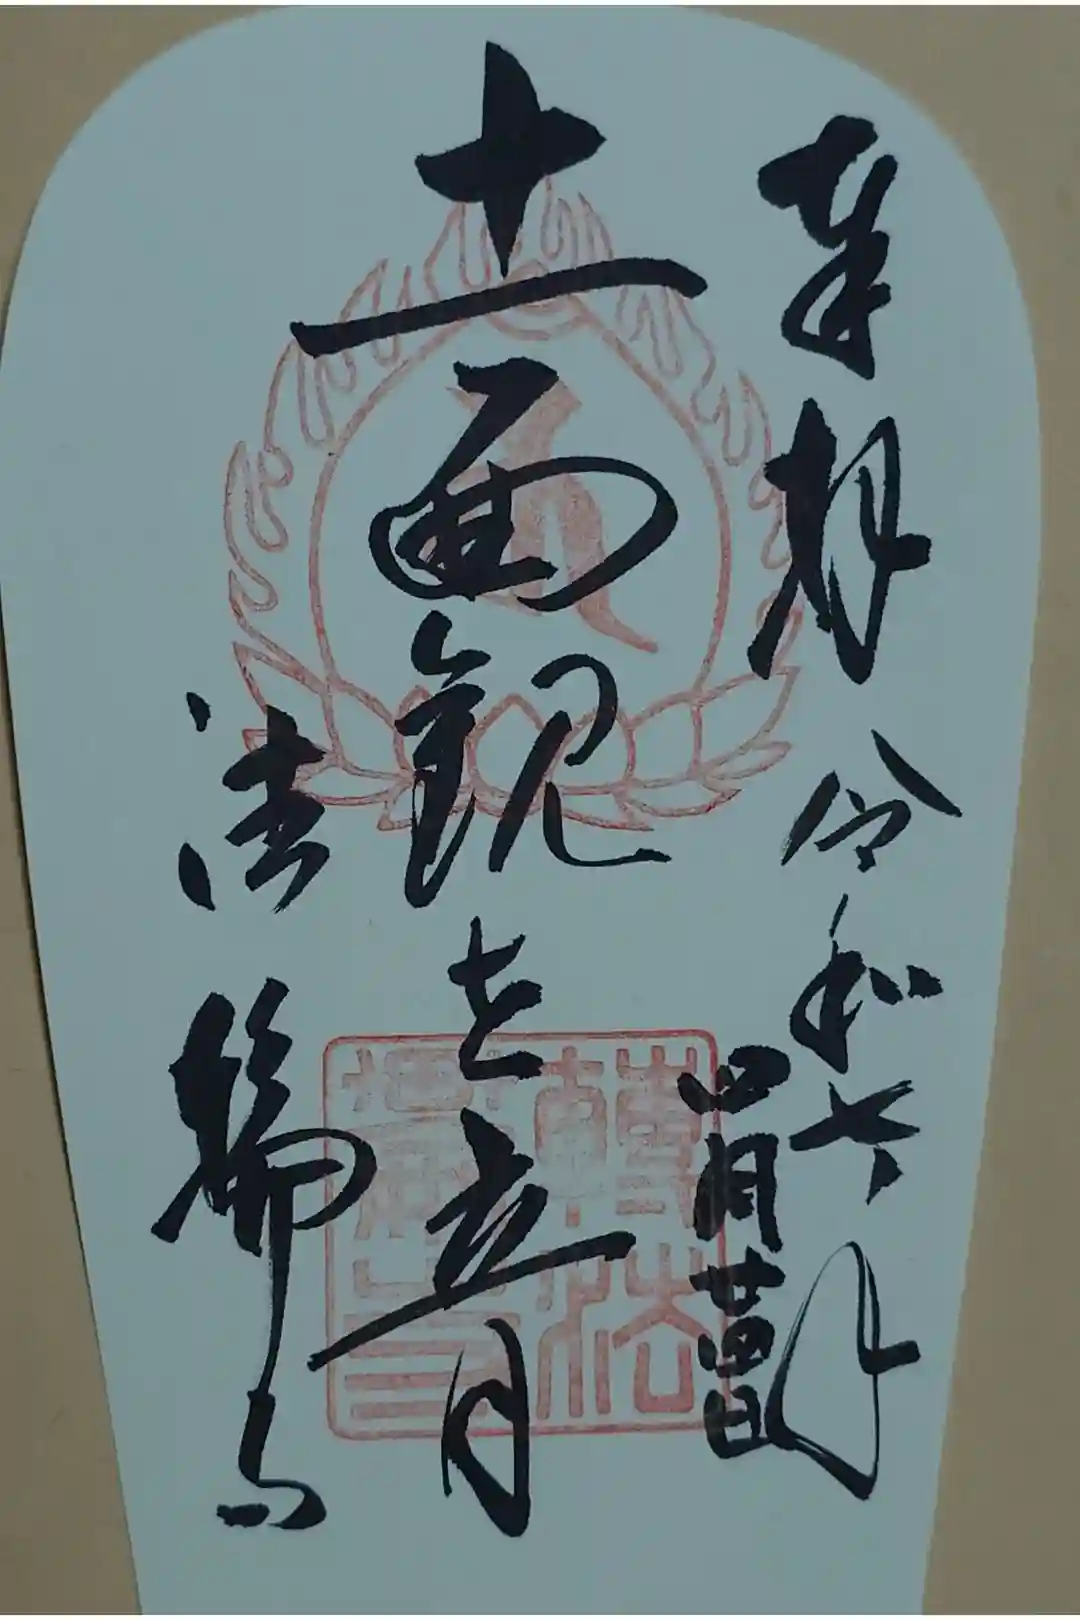 奉拝 令和六年
四月廿四日
十一面観世音
法輪寺